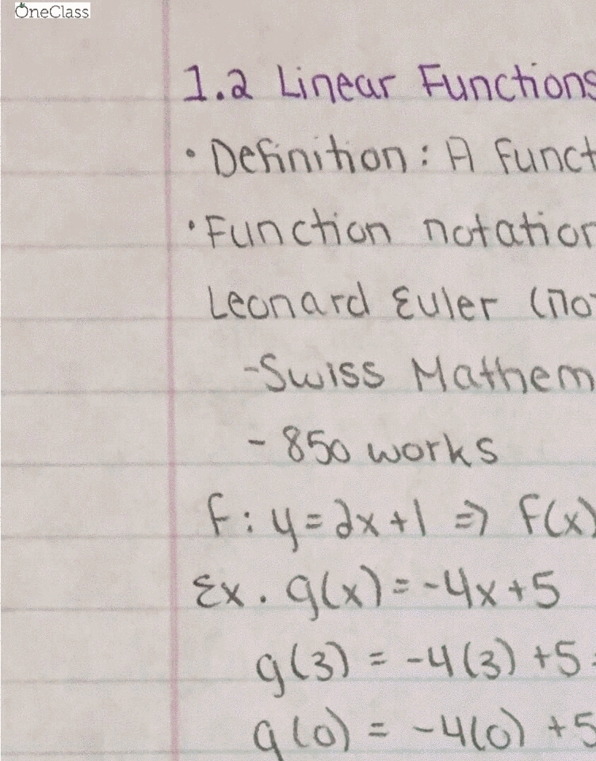 OneClass
1.2 Linear Functions
• Definition: A Funct
• Function notation
Leonard Euler (no
-Swiss Mathem
- 850 works
f: y=2x+1 => F(x)
Ex. g(x)=-4x+5
g(3) = -4(3) +5 =
g(0) = -4(0) +5